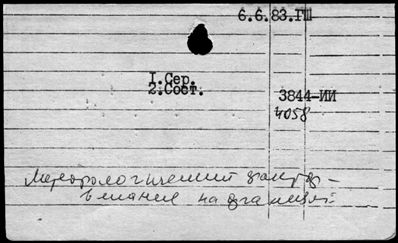 6.6.83.ГШ
I.Сер.
2.Сост.
3844-ИИ
4058
Метеорологический фактор -
влияние на